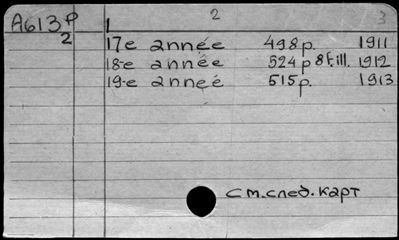 A613P 1 2 3
2 17-e année 498 p. 1911
18-e année 524 p 8 f. ill. 1912
19-e année 515 p. 1913
См. след. карт